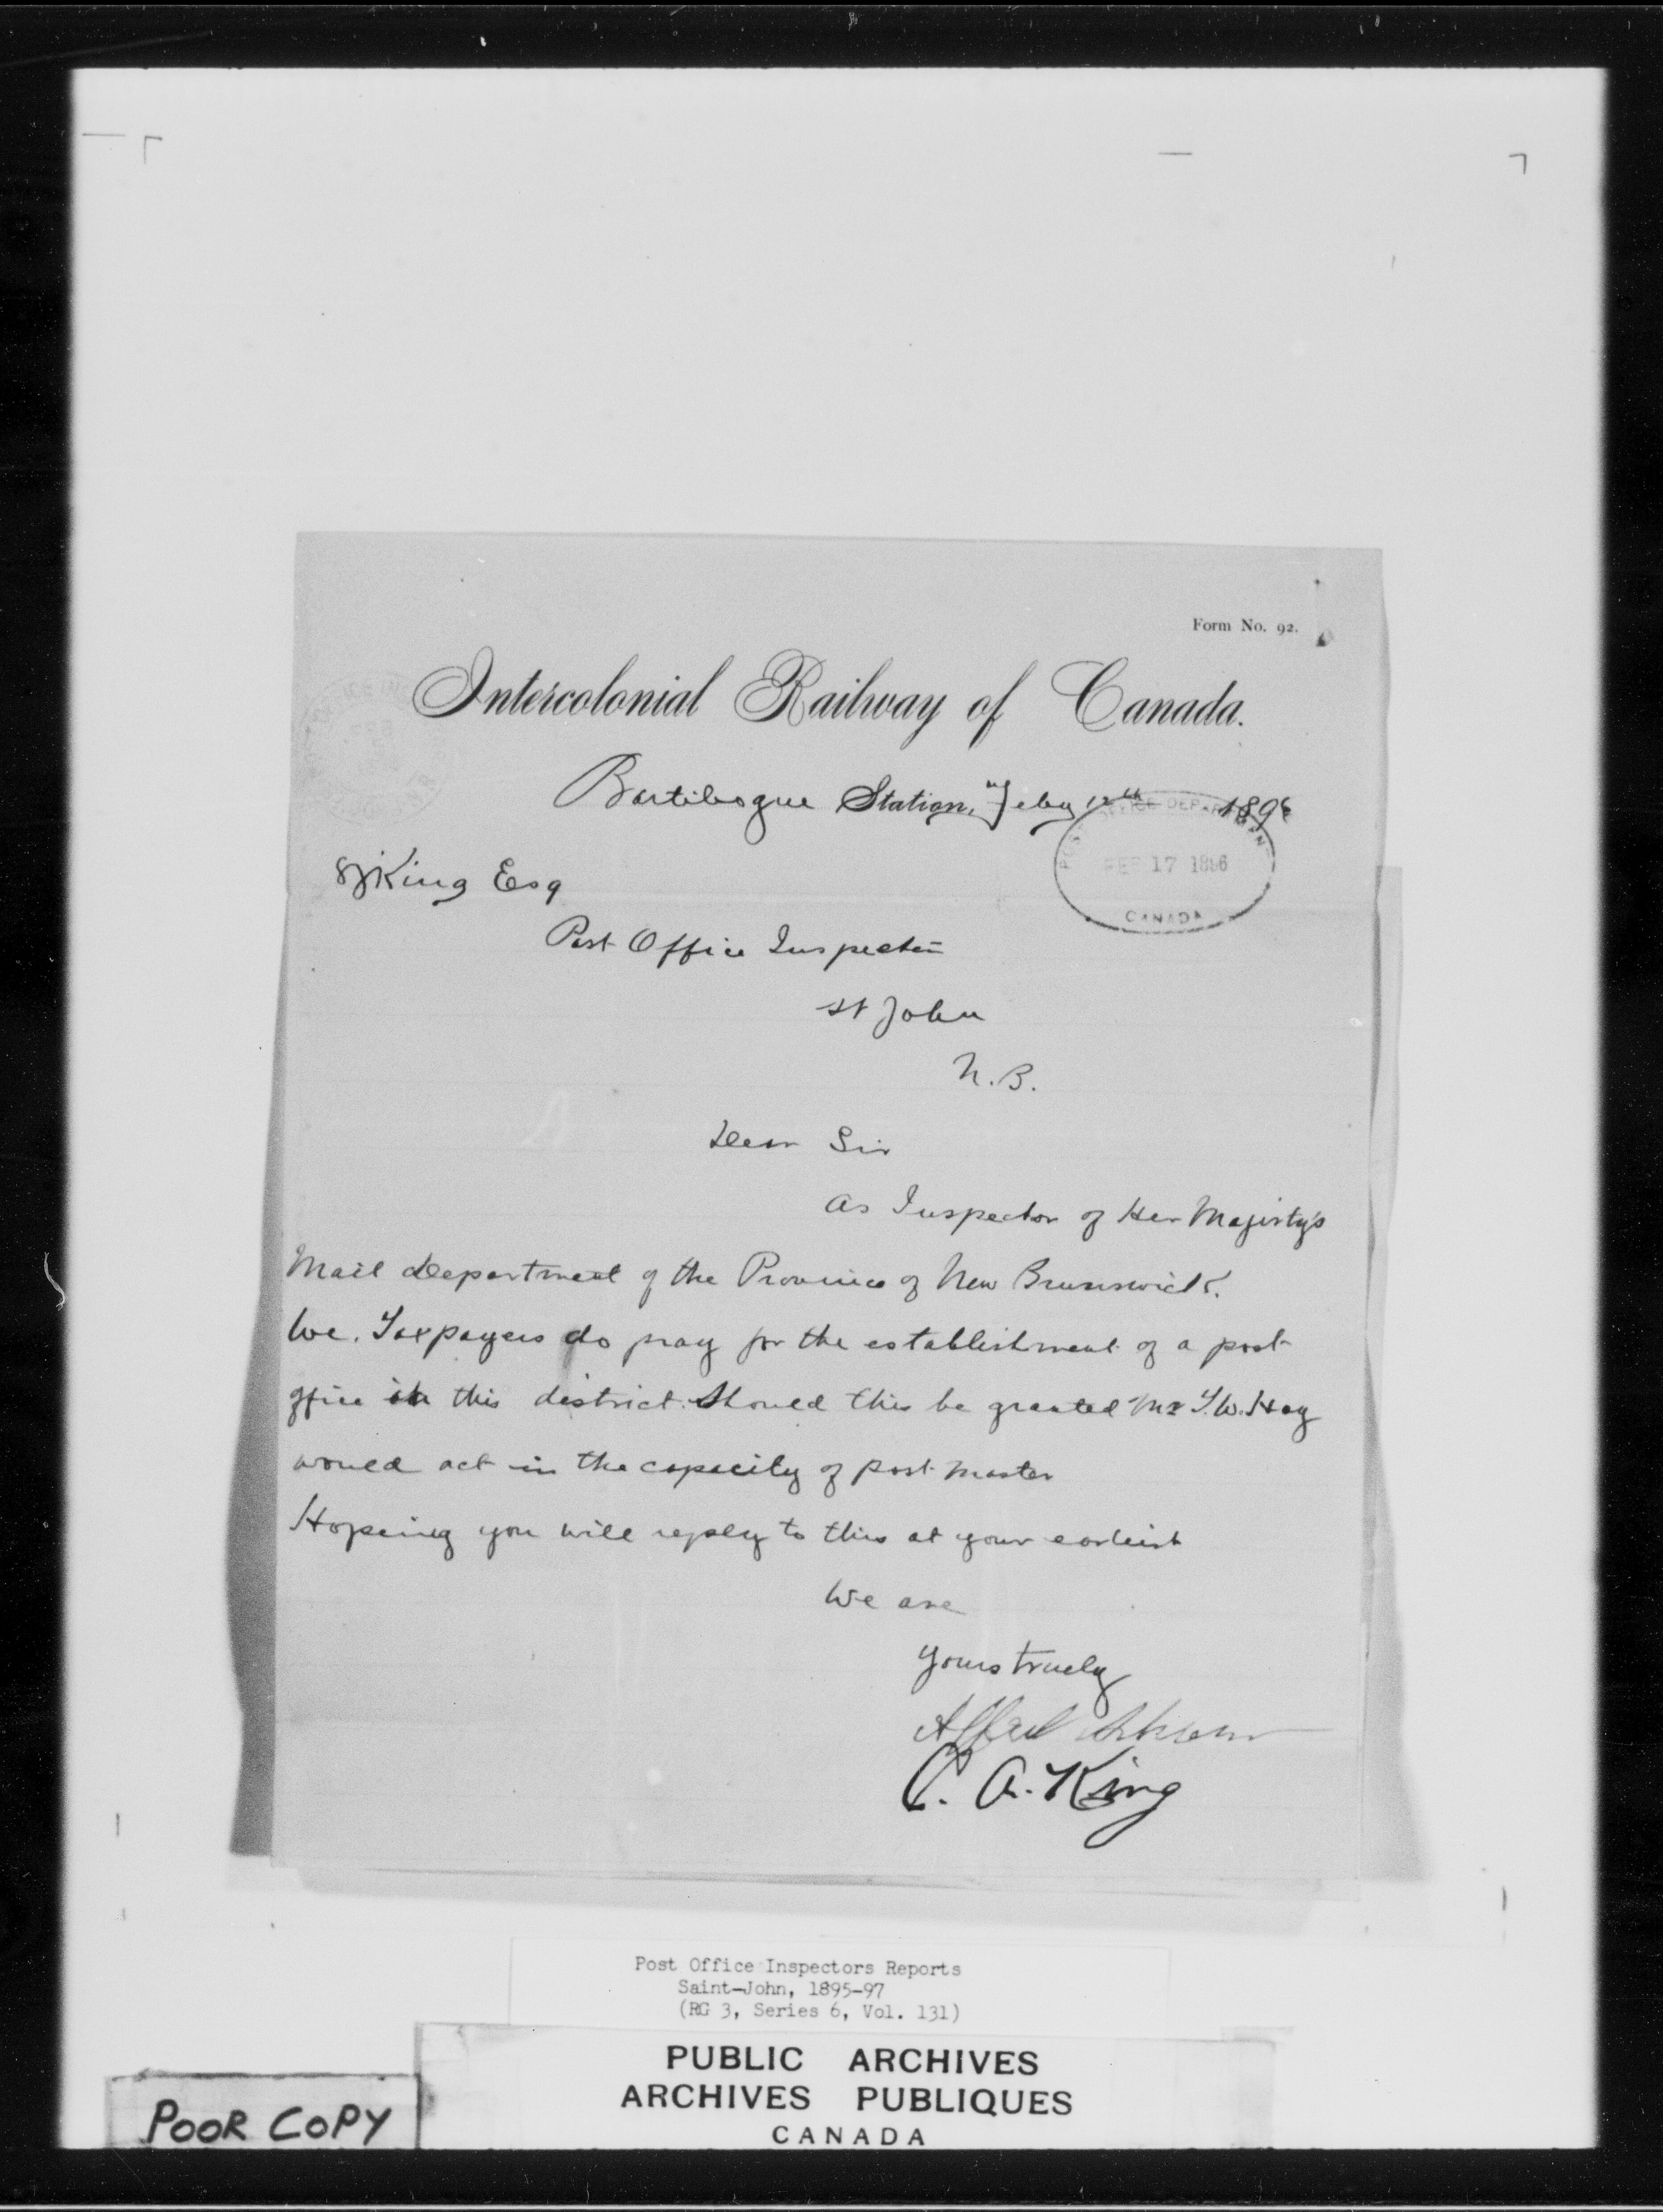 Form No. 92.
Intercolonial Railway of Canada.
Bartibogue Station, Feby 12th 1896
POST OFFICE DEPARTMENT
FEB 17 1896
CANADA
SJ King Esq
Post Office Inspector
St John
N.B.
Dear Sir
As Inspector of Her Majisty's
Mail department of the Province of New Brunswick.
We. Taxpayers do pray for the establishment of a post
office in this district. Should this be granted Mr T.W. Hay
would act in the capacity of post master
Hopeing you will reply to this at your earliest
We are
yours truely
Alfred
C. A. King
Post Office Inspectors Reports
Saint-John, 1895-97
(RG 3, Series 6, Vol. 131)
PUBLIC ARCHIVES
ARCHIVES PUBLIQUES
CANADA
POOR COPY